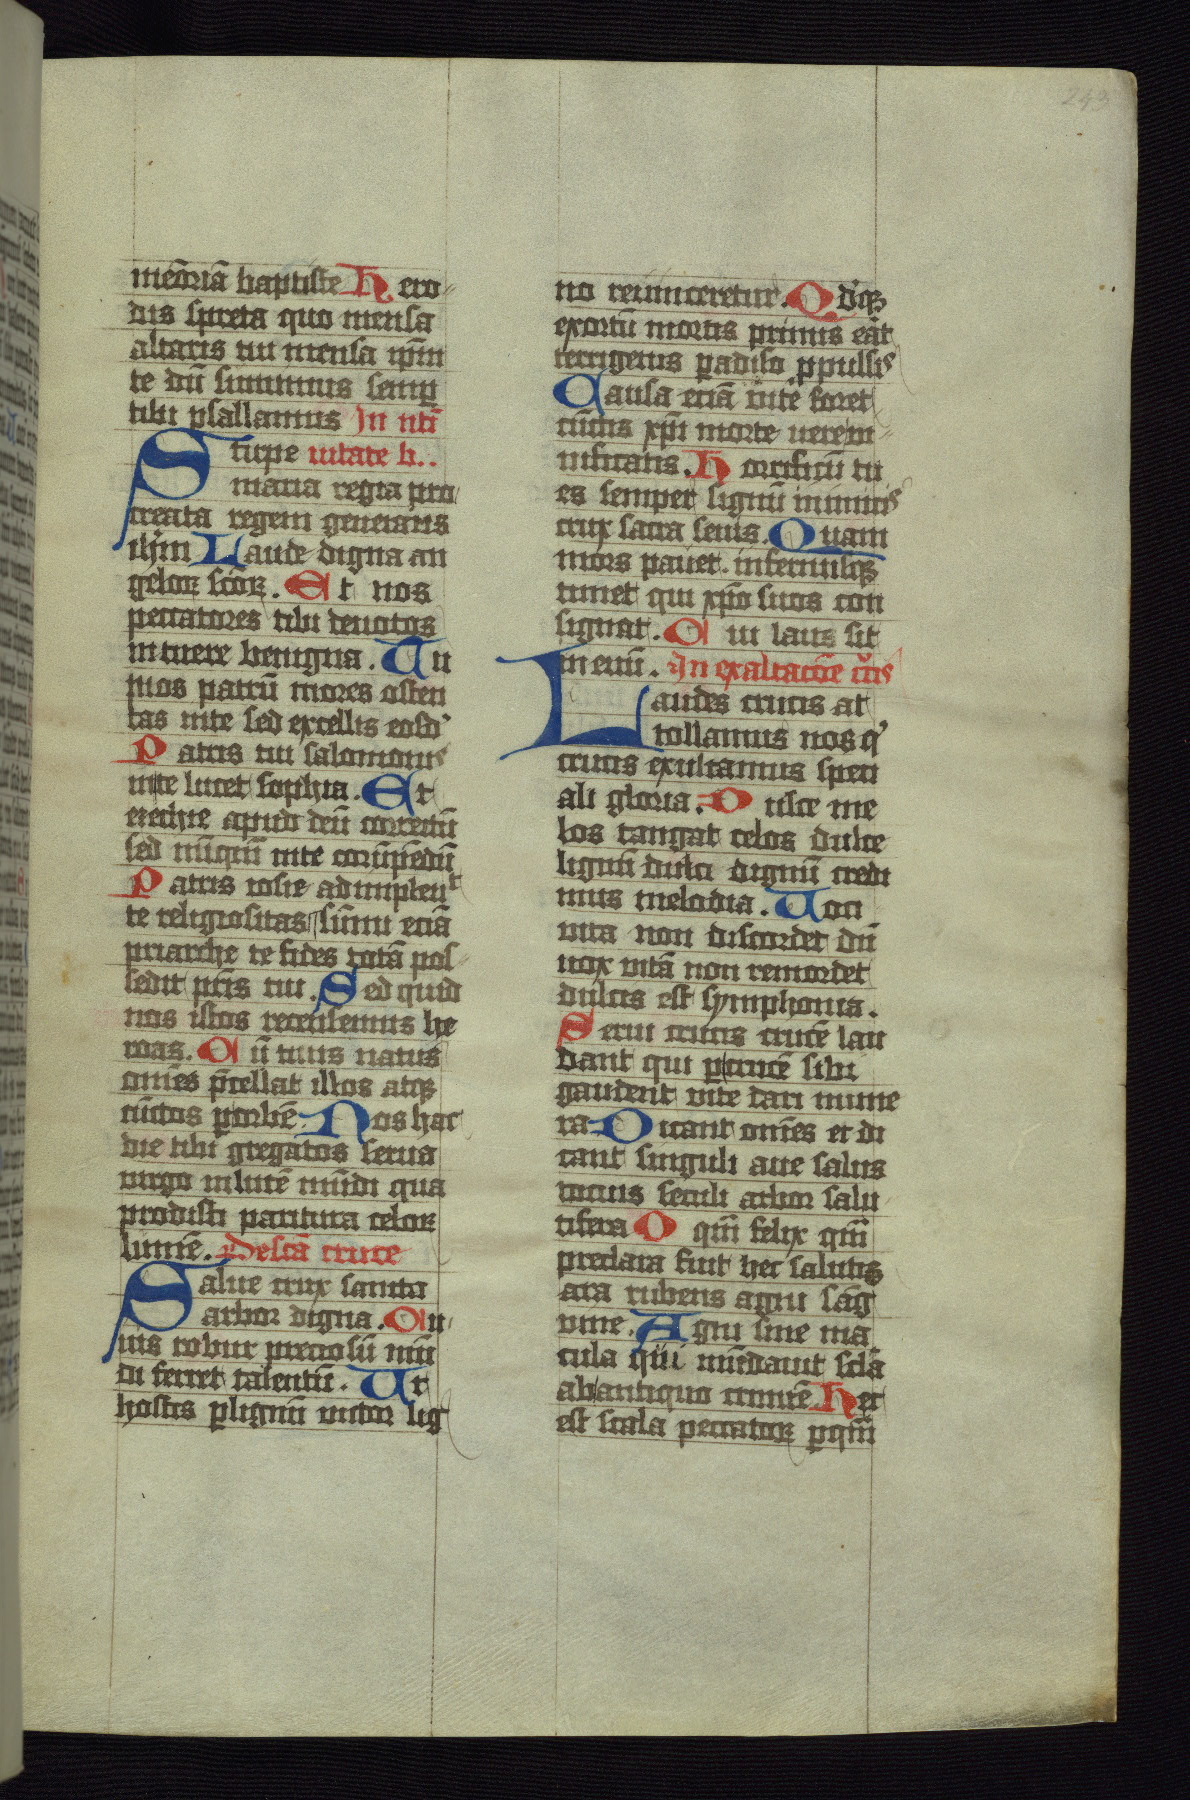 243
meōriā baptiste Hero
dis spreta quo mensa
altaris tui mensa ip̄m
te dū summus semp
tibi psallamus In nti
Stirpe uitate b..
maria regia pro
creata regem generans
ihm Laude digna an
geloꝝ scoꝝ. Et nos
peccatores tibi deuotos
intuere benigna. Tu
pios patrū mores osten
tas inte sed excellis eosdʼ
Patris tui salomonis
inte lucet sophia. Et
ezechie apud deū correctū
sed nūquā inte
Patris iosie adimpleuit
te religiositas sūmi eciā
priarche te fides totā pos
sedit pr̄is tui. Sed quid
nos istos recensemus he
roas. Cū tuus natus
om̄es p̄cellat illos atqꝫ
cūctos porbē. Nos hac
die tibi gregatos serua
uirgo inlucē mūdi qua
prodisti paritura celoꝝ
lumē. De scā cruce
Salue crux sancta
arbor digna. Cu
ius robur preciosū mū
di ferret talentū. Ut
hostis plignū uictor lig
no reuinceretur. Qd'qꝫ
exortū mortis primis eāt
terrigenis padiso ppulsis
Causa eciā uite foret
cūctis xp̄i morte uere ui
uificatis. Horrificū tu
es semper lignū inimicis
crux sacra seuis. Quam
mors pauet. infernusqꝫ
timet qui xp̄o suos con
signat. Cui laus sit
in euū. In exaltacōe crūs
Laudes crucis at
tollamus nos q'
crucis exultamus speci
ali gloria. Dulce me
los tangat celos dulce
lignū dulci dignū credi
mus melodia. Uoci
uita non discordet dū
uox uitā non remordet
dulcis est symphonia.
Serui crucis crucē lau
dant qui p crucē sibi
gaudent uite dari mune
ra. Dicant om̄es et di
cant singuli aue salus
tocius seculi arbor salu
tifera O qm̄ felix qm̄
preclara fuit hec salutis
ara rubens agni sāg
uine. Agni sine ma
cula qui mūdauit sclā
ab antiquo crimīe. Hec
est scala peccatoꝝ p qm̄